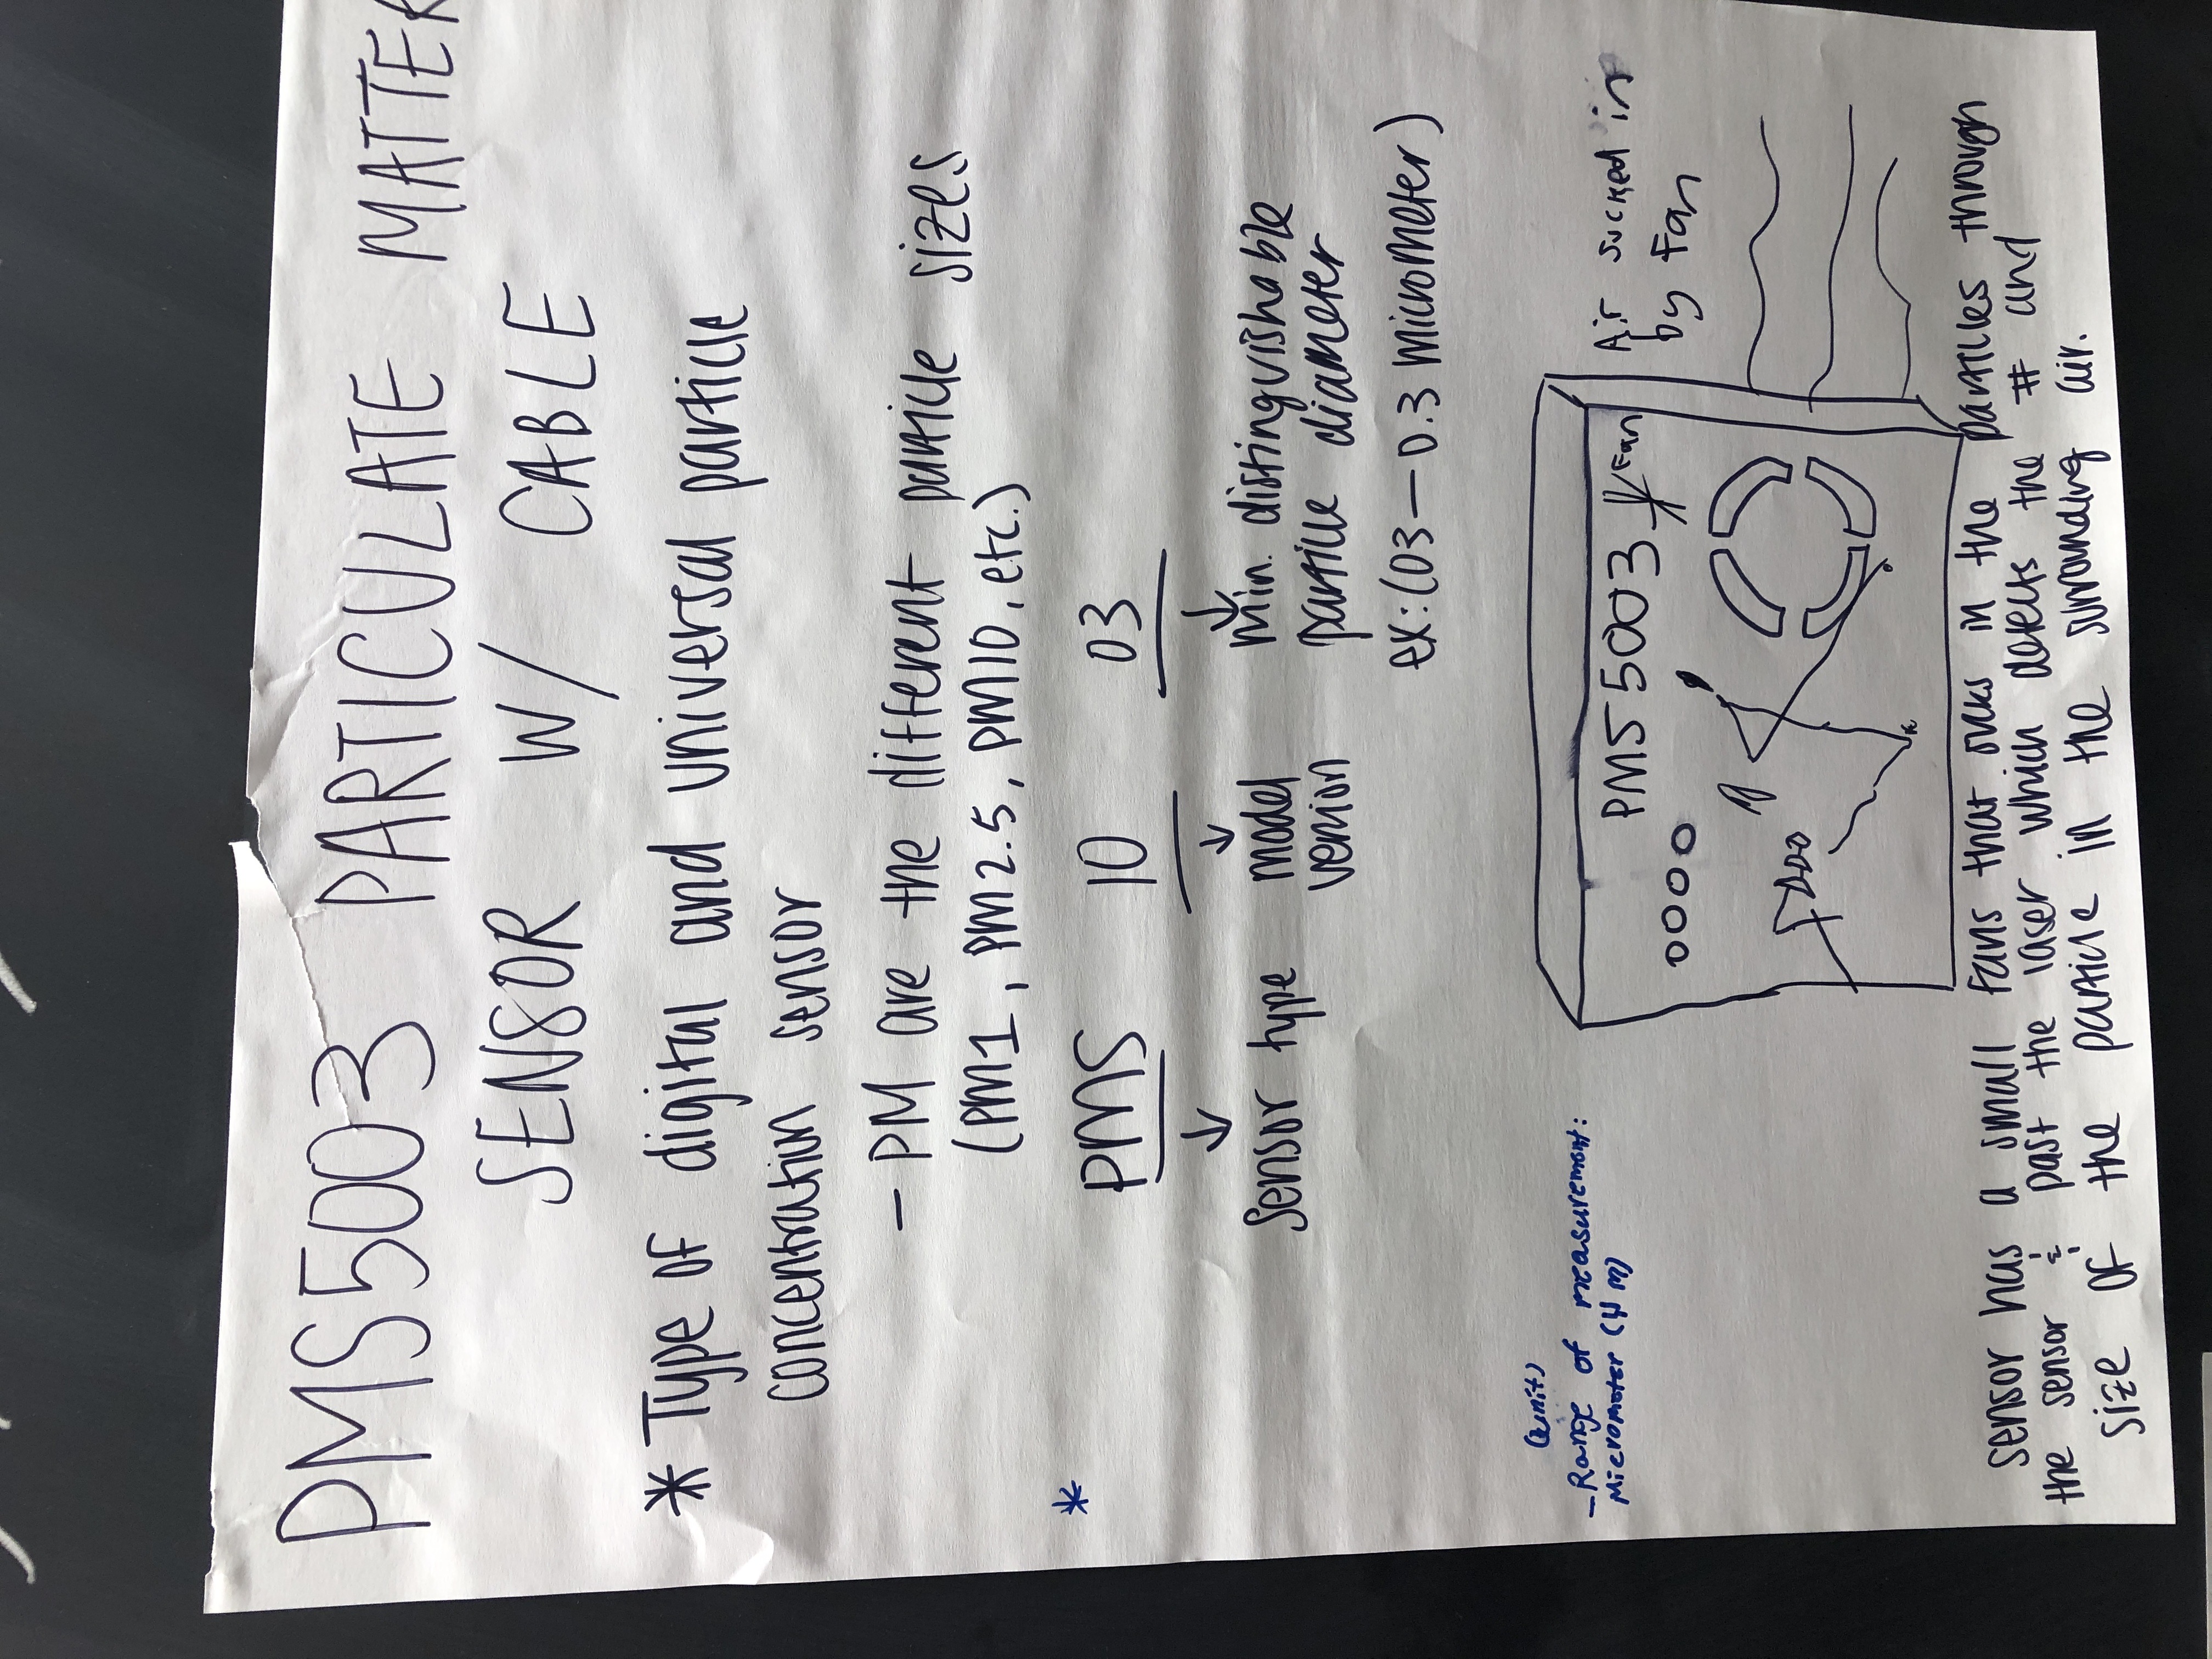 PMS5003 PARTICULATE MATTER
SENSOR W/ CABLE
* Type of digital and universal particle
concentration sensor
- PM are the different particle sizes
(PM1, PM2.5, PM10, etc.)
*
PMS 10 03
sensor type
model
version
min. distinguishable
particle diameter
ex: (03 — 0.3 micrometer)
(unit)
- Range of measurement:
Micrometer (μm)
PMS 5003
Fan
Air sucked in
by Fan
sensor has a small fans that sucks in the particles through
the sensor & past the laser which detects the # and
size of the particle in the surrounding air.